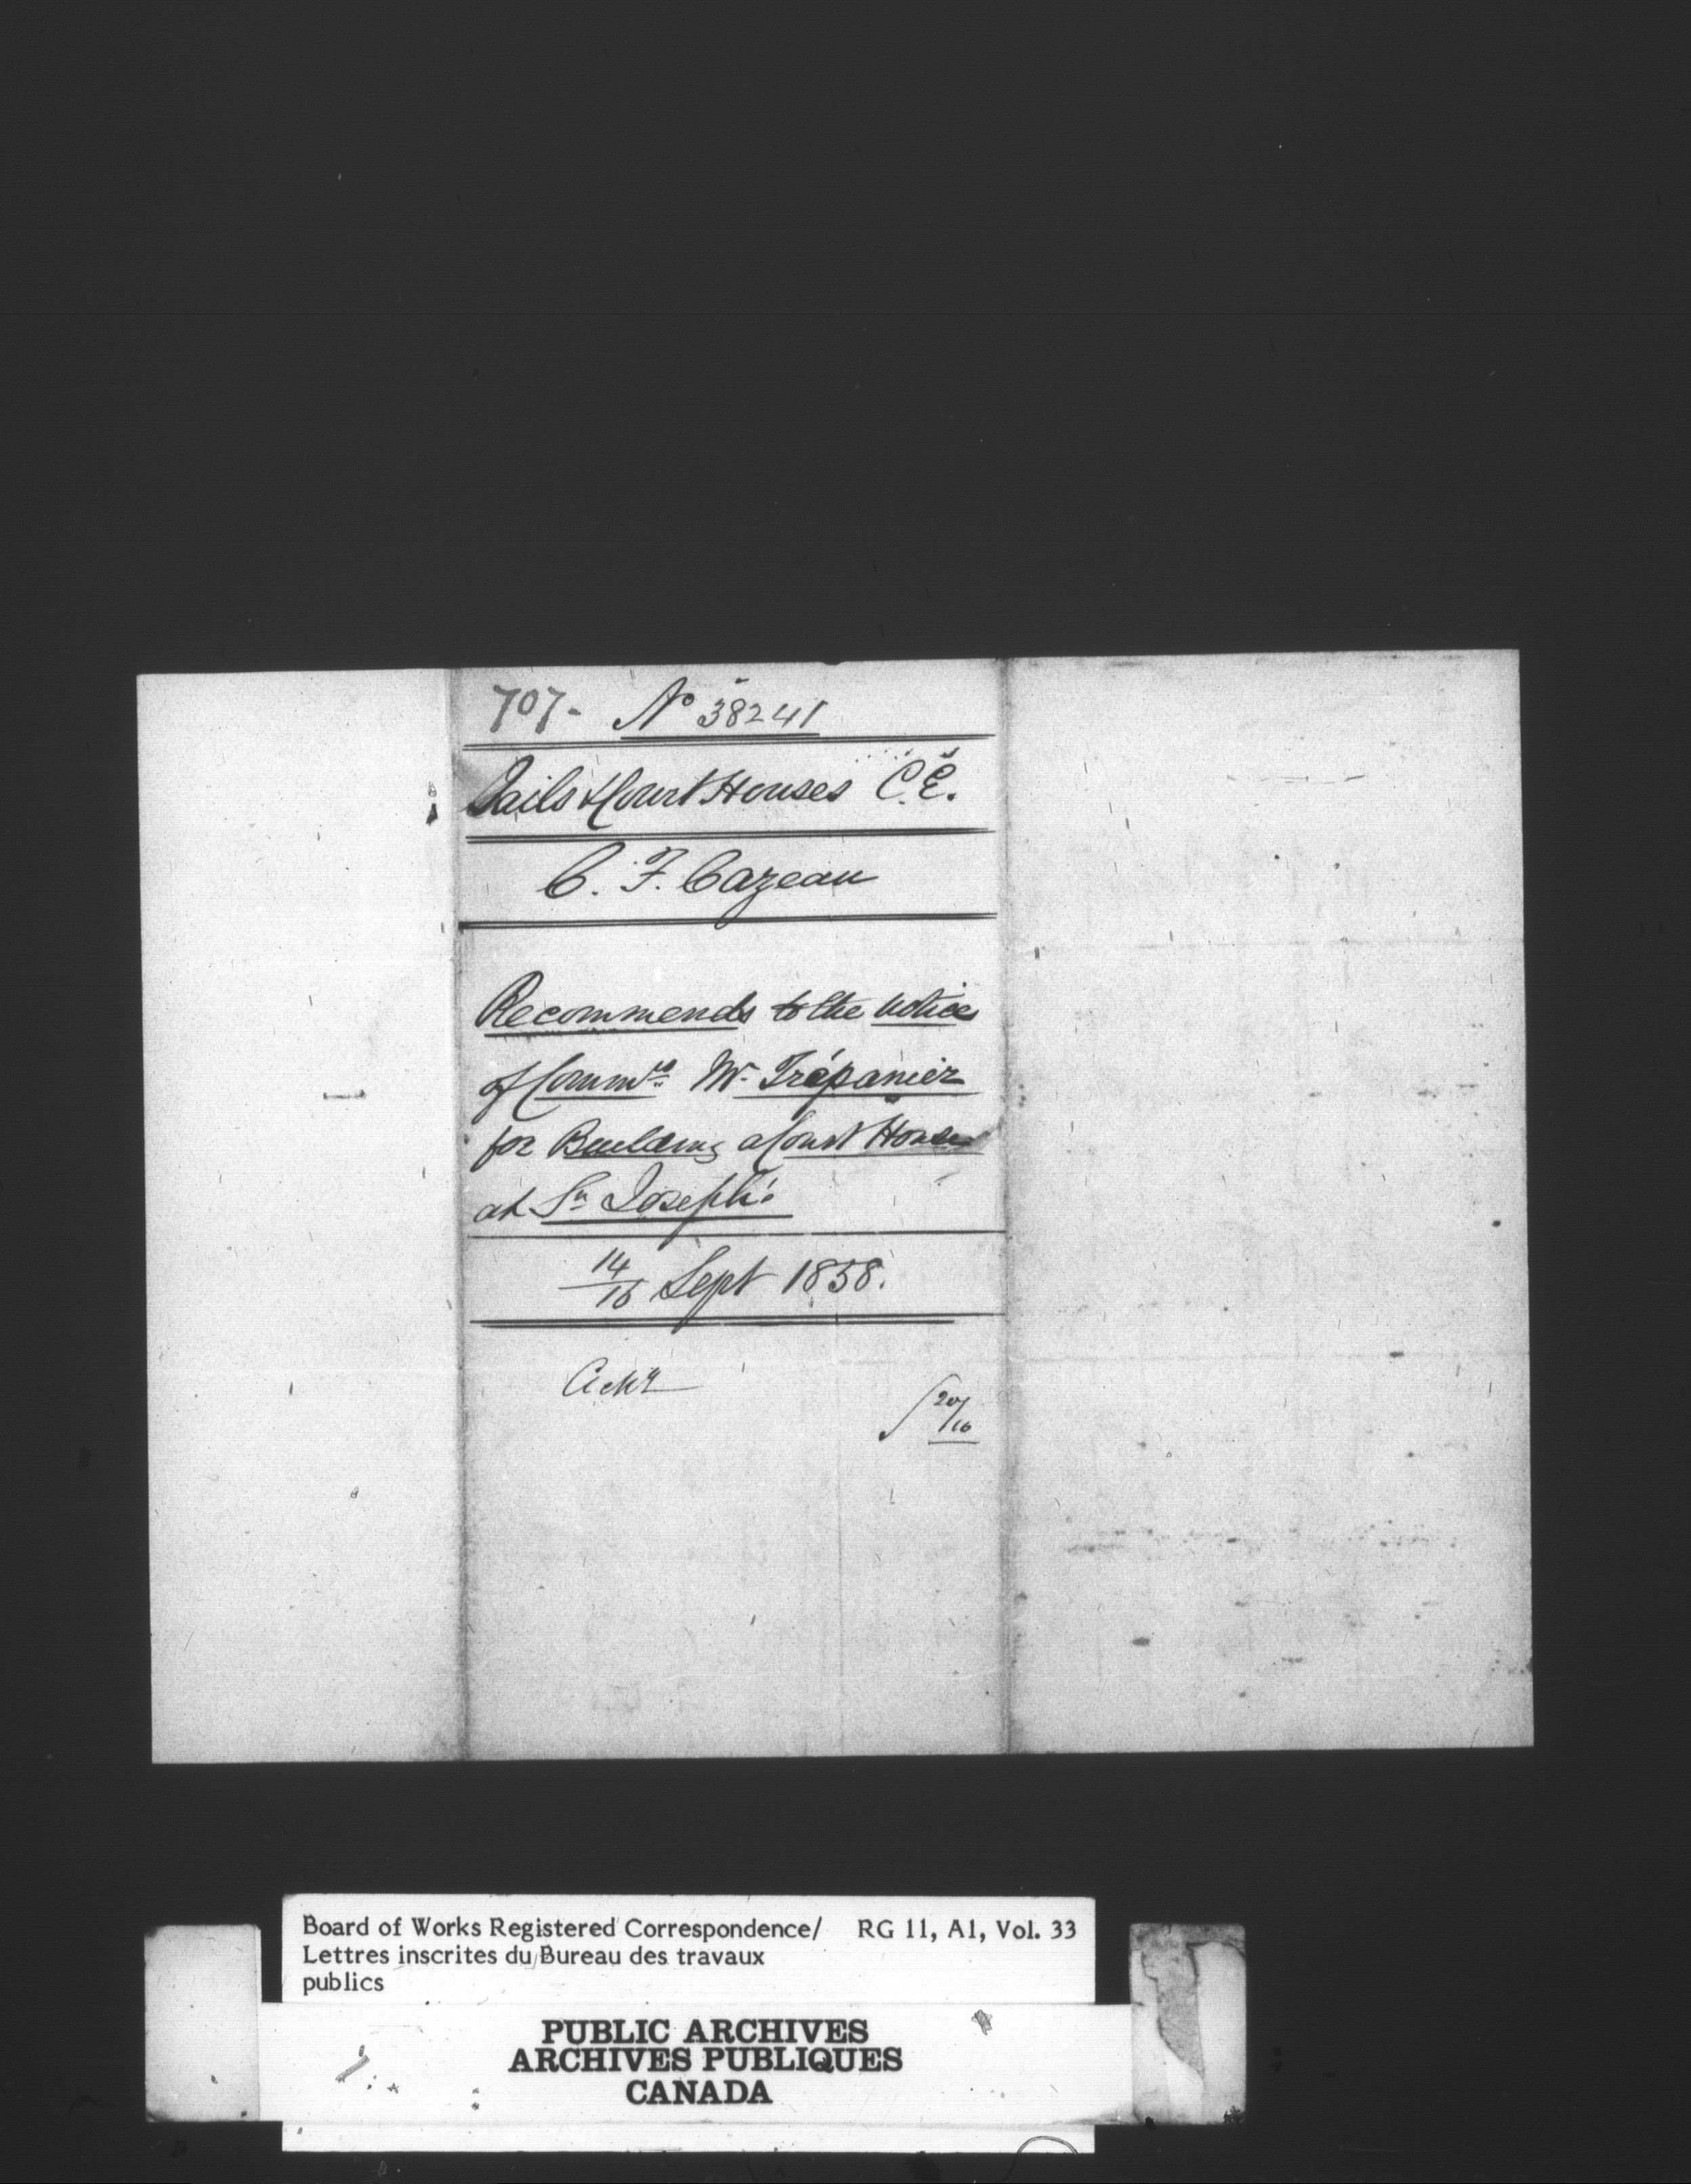 707- No 38241
Jails & Court Houses C.E.
C. F. Cazeau
Recommends to the notice
of Commrs Mr. Trépanier
for Building a Court House
at St Joseph's
14/16 Sept 1858.
Ackd
20/10
Board of Works Registered Correspondence/ RG 11, A1, Vol. 33
Lettres inscrites du Bureau des travaux
publics
PUBLIC ARCHIVES
ARCHIVES PUBLIQUES
CANADA